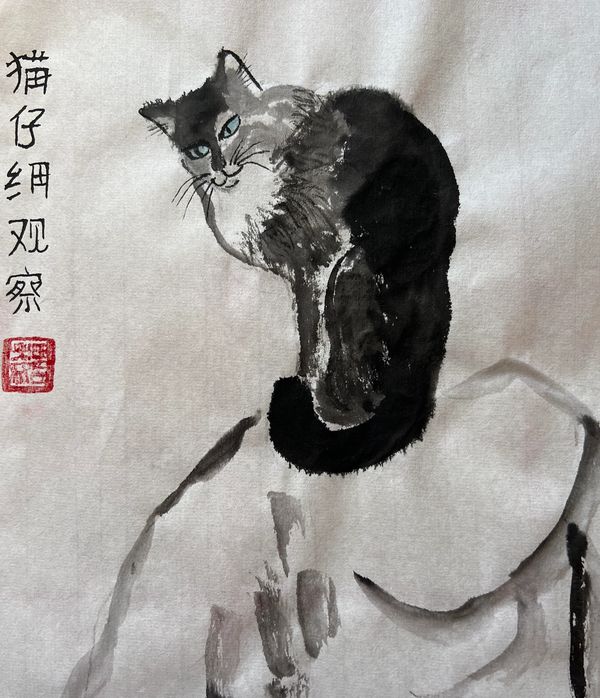 猫仔细观察